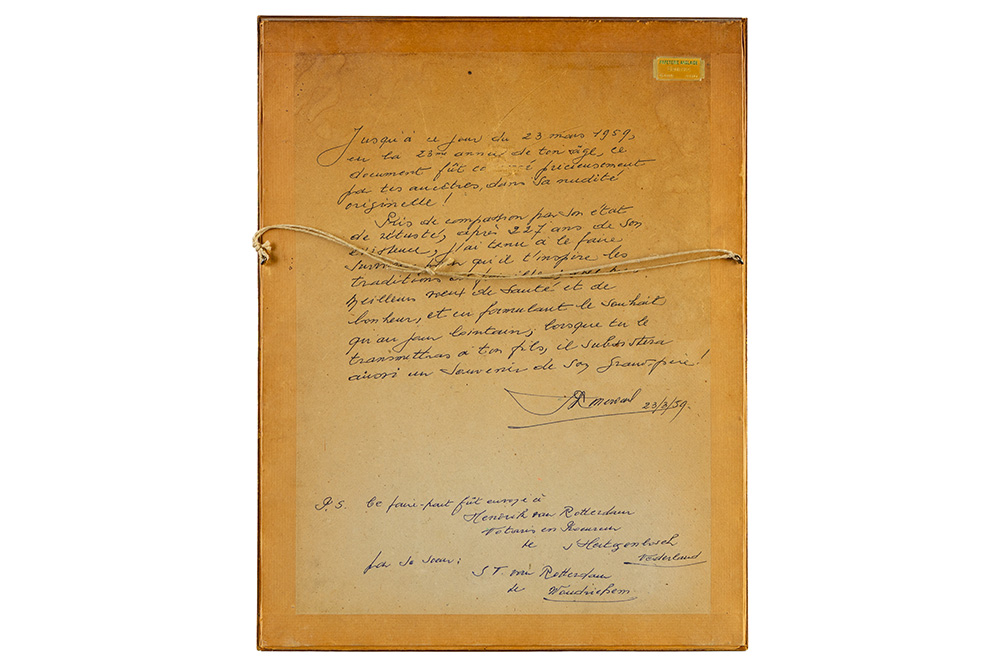 Jusqu'à ce jour du 23 mars 1959,
en la 23me année de ton âge, ce
document fût précieusement
par tes ancêtres, dans sa nudité
originelle !
Pris de compassion par son état
de vétusté, après 227 ans de son
existence, j'ai tenu à le faire
qu'il t'inspire les
traditions
meilleurs vœux de santé et de
bonheur, et en formulant le souhait
qu'au jour lointain, lorsque tu le
transmettras à ton fils, il subsistera
aussi un souvenir de son Grand-père !
23/3/59.
P.S. Ce faire-part fût envoyé à
Hendrik van Rotterdam
Notaris en Procureur
de s'Hertogenbosch
Nederland
par sa sœur :
S T. van Rotterdam
de Woudrichem